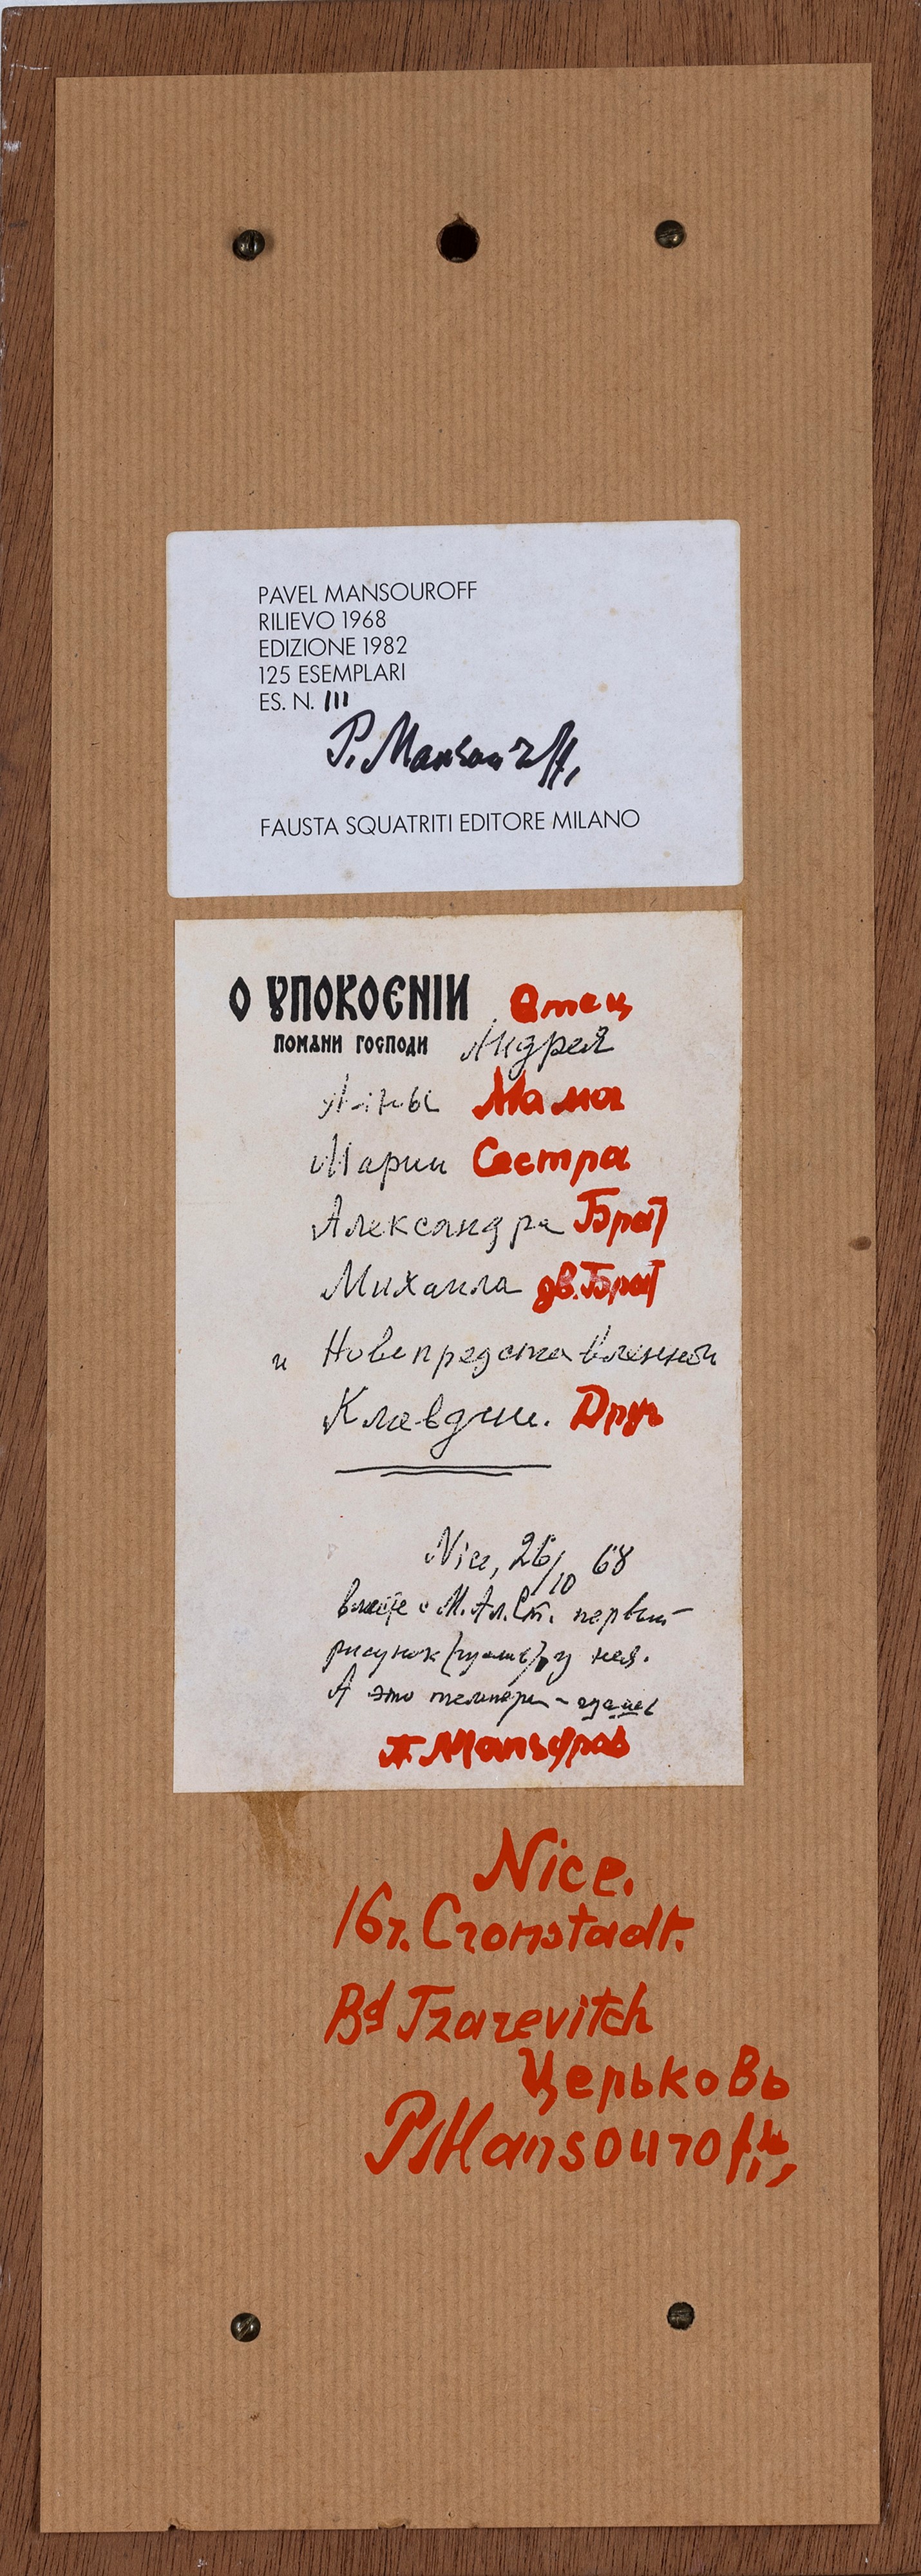 PAVEL MANSOUROFF
RILIEVO 1968
EDIZIONE 1982
125 ESEMPLARI
ES. N. III
P. Mansouroff,
FAUSTA SQUATRITI EDITORE MILANO
О УПОКОЄНІИ Отец
ПОМѦНИ ГОСПОДИ Андрея
Анны Мама
Марии Сестра
Александра Брат
Михаила дв. Брат
и Новопредставленной
Клавдии. Друг
Nice, 26/10 68
вместе с М. Ал. Ст. первый
рисунок у нея.
А это
П. Мансуров
Nice.
16 r. Cronstadt.
Bd Tzarevitch
Церьковь
P. Mansouroff,